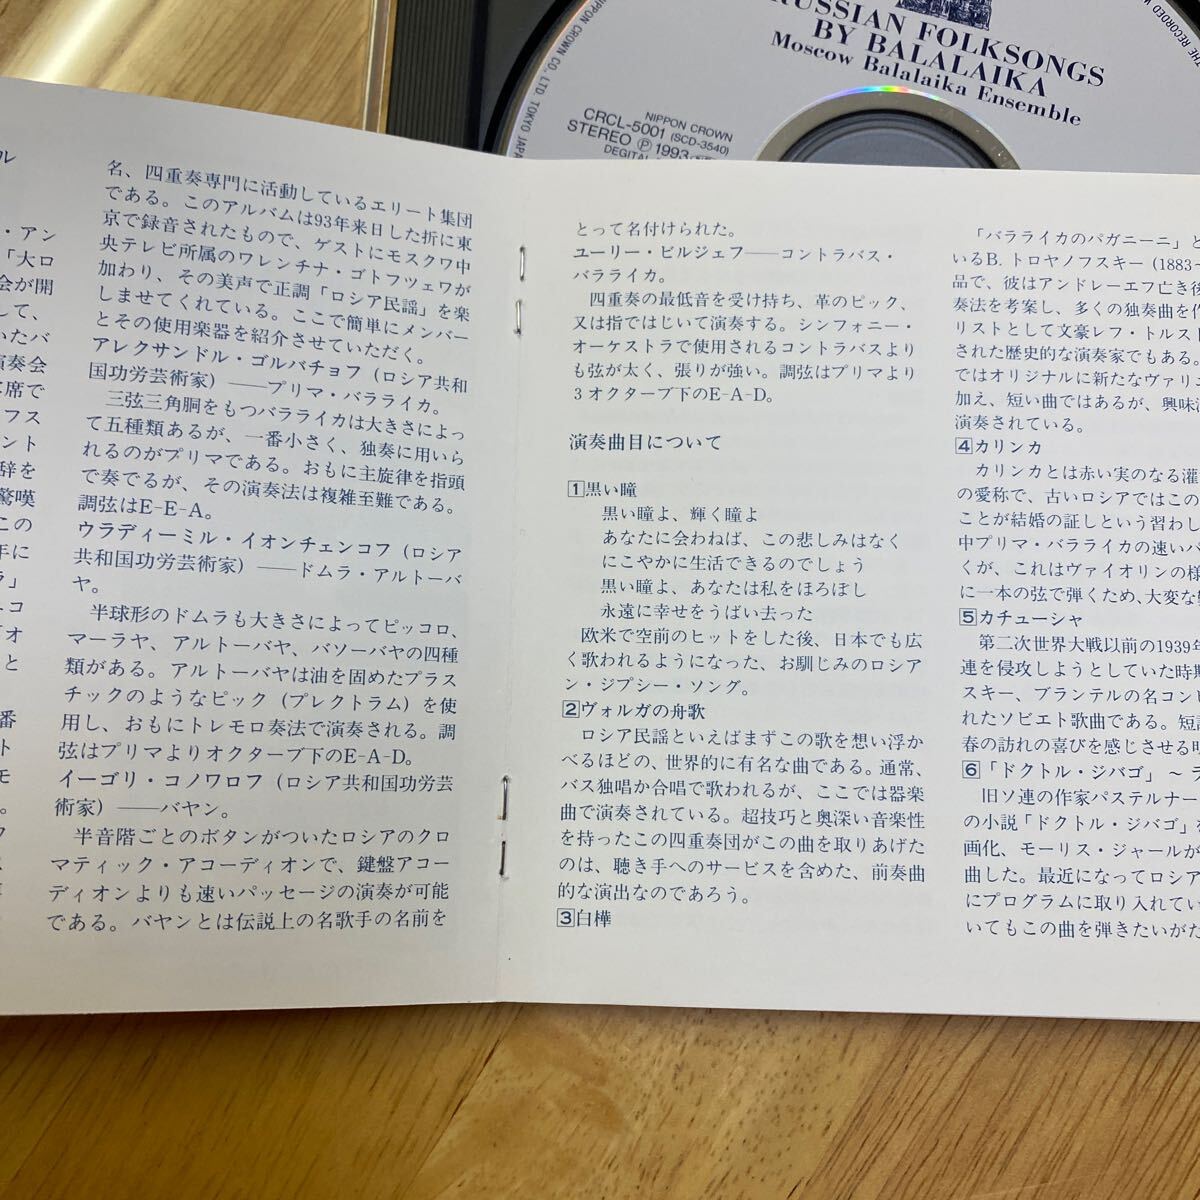 RUSSIAN FOLKSONGS
BY BALALAIKA
Moscow Balalaika Ensemble
NIPPON CROWN CO., LTD. TOKYO JAPA
THE RECORDED
NIPPON CROWN
CRCL-5001 (SCD-3540)
STEREO Ⓟ1993
DEGITAL
ル
・アン
「大ロ
会が開
して、
いたバ
演奏会
席で
フス
ント
辞を
驚嘆
この
年に
ラ」
コ
オ
と
番
ト
モ
。
名、四重奏専門に活動しているエリート集団
である。このアルバムは93年来日した折に東
京で録音されたもので、ゲストにモスクワ中
央テレビ所属のワレンチナ・ゴトフツェワが
加わり、その美声で正調「ロシア民謡」を楽
しませてくれている。ここで簡単にメンバー
とその使用楽器を紹介させていただく。
アレクサンドル・ゴルバチョフ（ロシア共和
国功労芸術家）——プリマ・バラライカ。
三弦三角胴をもつバラライカは大きさによっ
て五種類あるが、一番小さく、独奏に用いら
れるのがプリマである。おもに主旋律を指頭
で奏でるが、その演奏法は複雑至難である。
調弦はE-E-A。
ウラディーミル・イオンチェンコフ（ロシア
共和国功労芸術家）——ドムラ・アルトーバ
ヤ。
半球形のドムラも大きさによってピッコロ、
マーラヤ、アルトーバヤ、バソーバヤの四種
類がある。アルトーバヤは油を固めたプラス
チックのようなピック（プレクトラム）を使
用し、おもにトレモロ奏法で演奏される。調
弦はプリマよりオクターブ下のE-A-D。
イーゴリ・コノワロフ（ロシア共和国功労芸
術家）——バヤン。
半音階ごとのボタンがついたロシアのクロ
マティック・アコーディオンで、鍵盤アコー
ディオンよりも速いパッセージの演奏が可能
である。バヤンとは伝説上の名歌手の名前を
とって名付けられた。
ユーリー・ビルジェフ——コントラバス・
バラライカ。
四重奏の最低音を受け持ち、革のピック、
又は指ではじいて演奏する。シンフォニー・
オーケストラで使用されるコントラバスより
も弦が太く、張りが強い。調弦はプリマより
3オクターブ下のE-A-D。
演奏曲目について
1黒い瞳
黒い瞳よ、輝く瞳よ
あなたに会わねば、この悲しみはなく
にこやかに生活できるのでしょう
黒い瞳よ、あなたは私をほろぼし
永遠に幸せをうばい去った
欧米で空前のヒットをした後、日本でも広
く歌われるようになった、お馴じみのロシア
ン・ジプシー・ソング。
2ヴォルガの舟歌
ロシア民謡といえばまずこの歌を想い浮か
べるほどの、世界的に有名な曲である。通常、
バス独唱か合唱で歌われるが、ここでは器楽
曲で演奏されている。超技巧と奥深い音楽性
を持ったこの四重奏団がこの曲を取りあげた
のは、聴き手へのサービスを含めた、前奏曲
的な演出なのであろう。
3白樺
「バラライカのパガニーニ」と
いるB. トロヤノフスキー (1883~
品で、彼はアンドレーエフ亡き後
奏法を考案し、多くの独奏曲を作
リストとして文豪レフ・トルスト
された歴史的な演奏家でもある。
ではオリジナルに新たなヴァリエ
加え、短い曲ではあるが、興味
演奏されている。
4カリンカ
カリンカとは赤い実のなる灌
の愛称で、古いロシアではこの
ことが結婚の証しという習わし
中プリマ・バラライカの速いパ
くが、これはヴァイオリンの様
に一本の弦で弾くため、大変な
5カチューシャ
第二次世界大戦以前の1939年
連を侵攻しようとしていた時期
スキー、ブランテルの名コンビ
れたソビエト歌曲である。短調
春の訪れの喜びを感じさせる明
6「ドクトル・ジバゴ」～ラ
旧ソ連の作家パステルナー
の小説「ドクトル・ジバゴ」を
画化、モーリス・ジャールが
曲した。最近になってロシア
にプログラムに取り入れてい
いてもこの曲を弾きたいがた